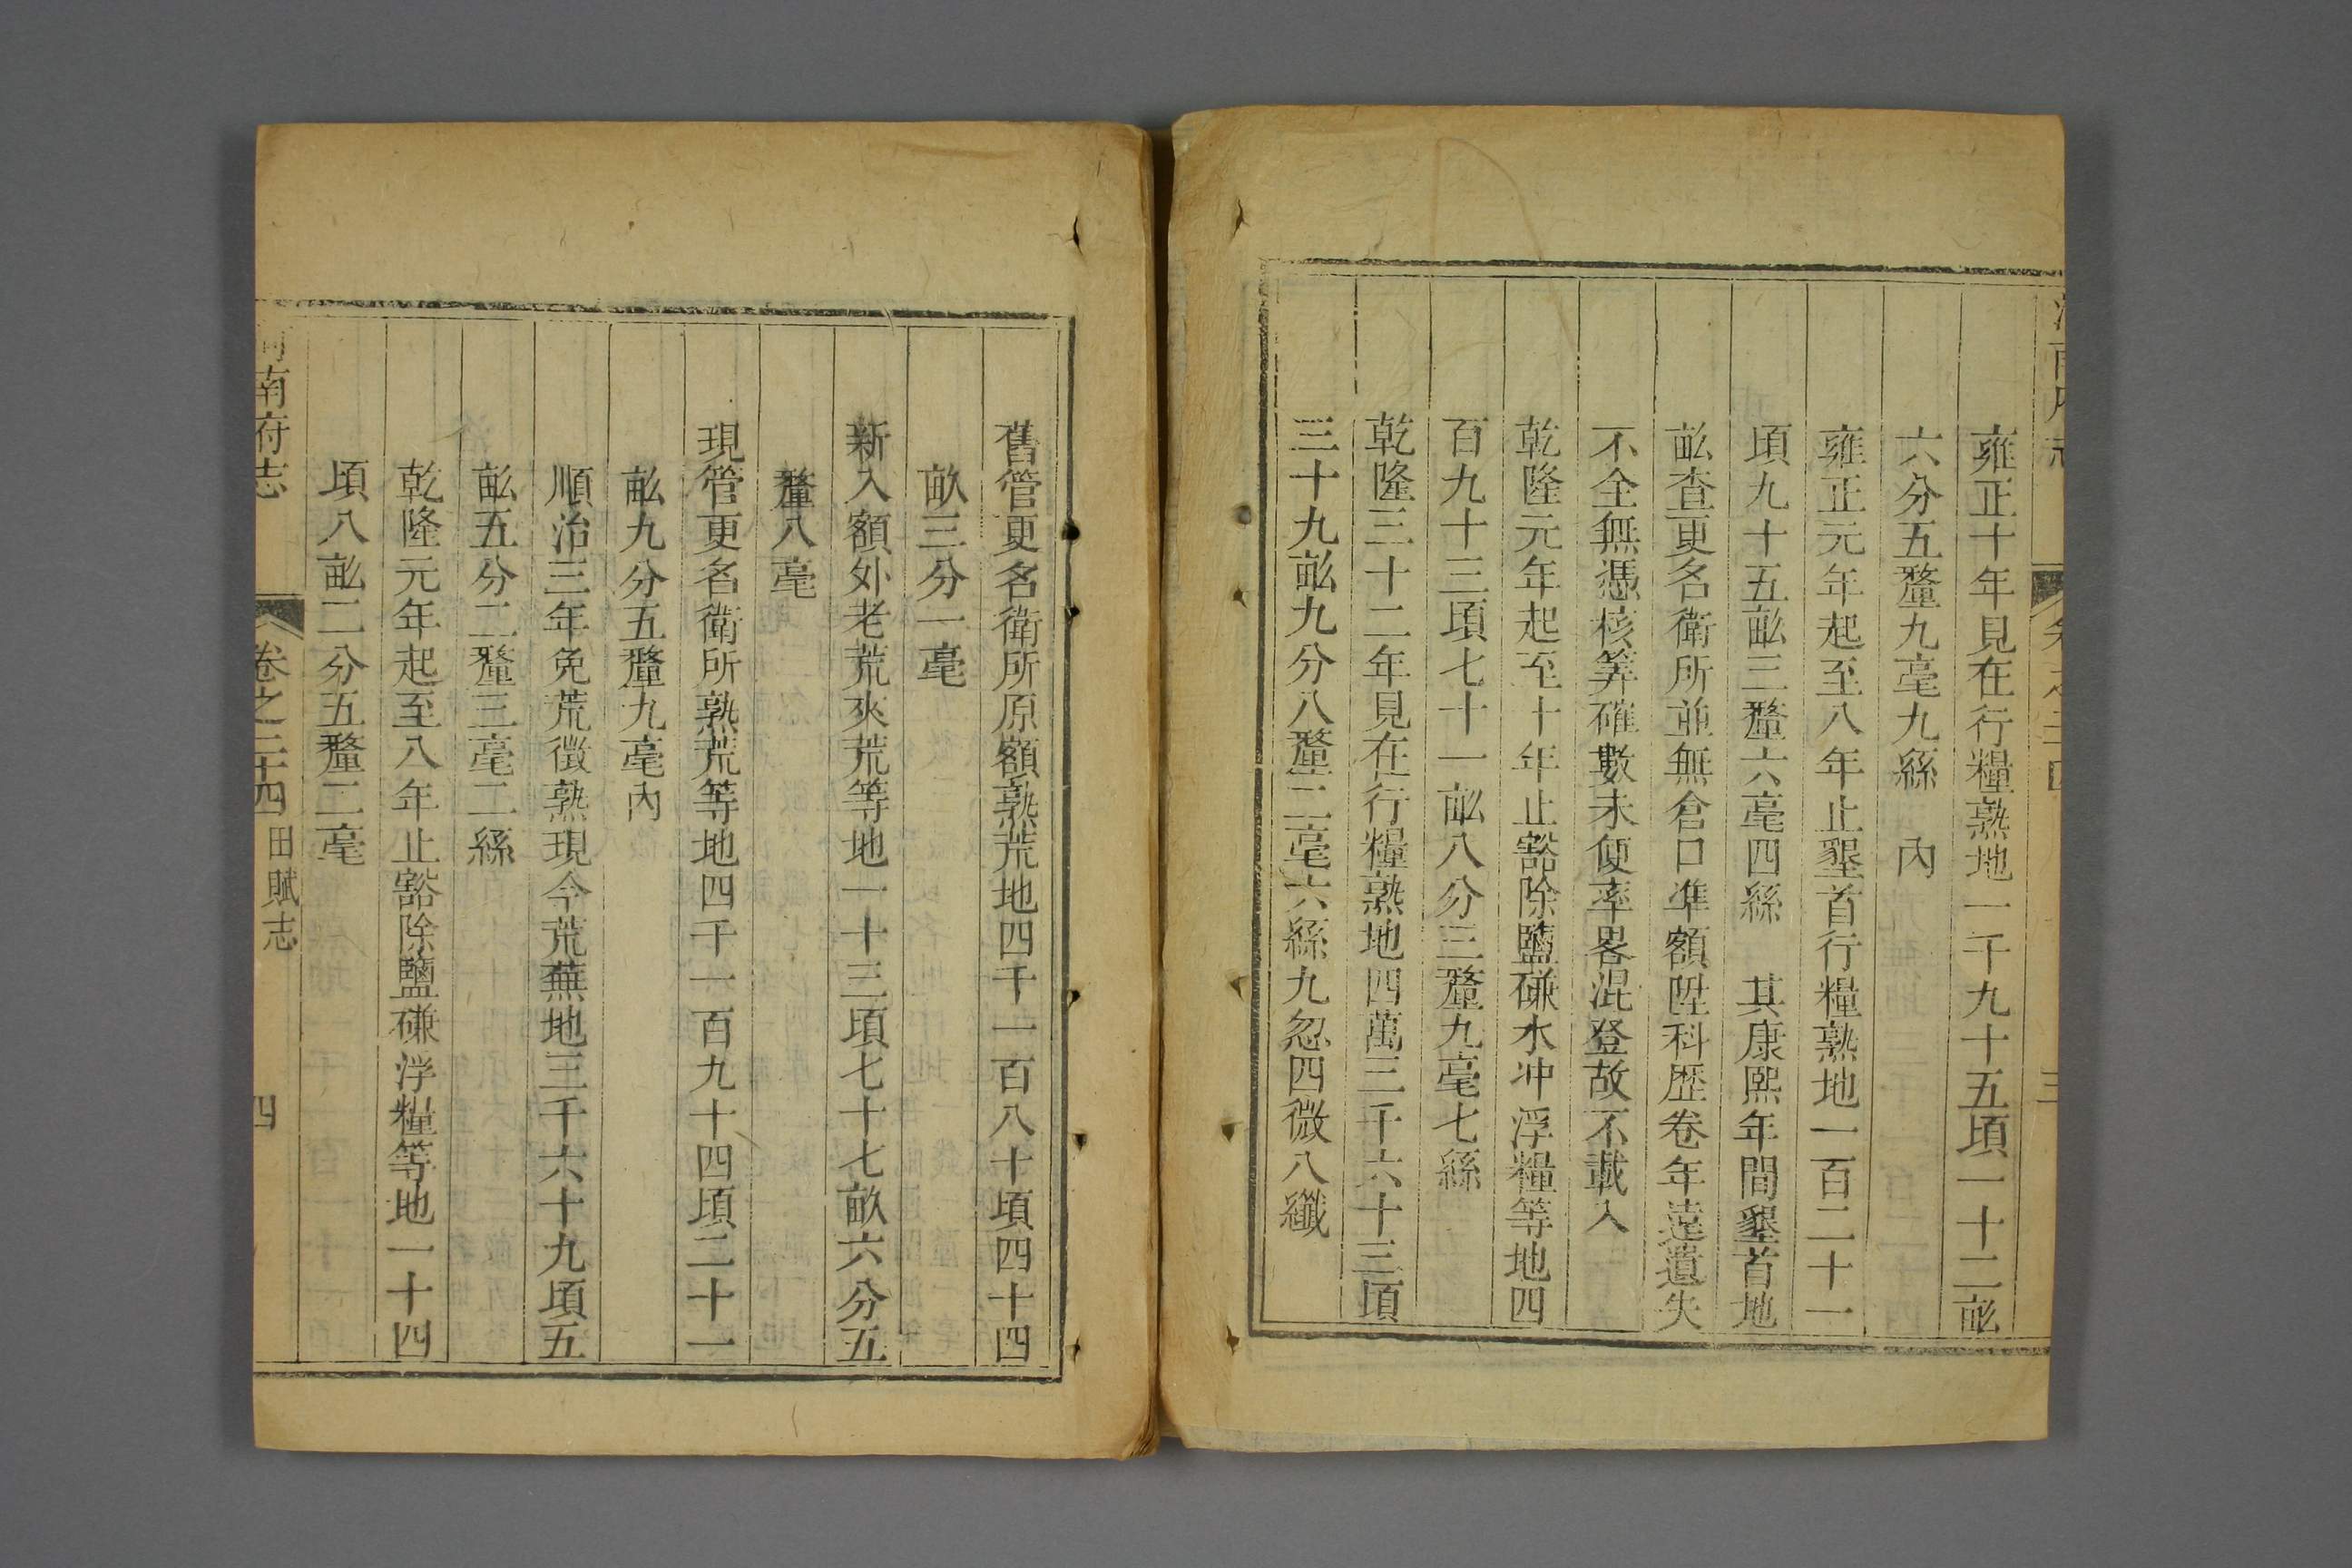 雍正十年見在行糧熟地一千九十五頃一十二畝
六分五釐九毫九絲　內
雍正元年起至八年止墾首行糧熟地一百二十一
頃九十五畝三釐六毫四絲　其康熙年間墾首地
畝查更名衛所並無倉口準額陞科歷卷年遠遺失
不全無憑核筭確數未便率畧混登故不載入
乾隆元年起至十年止豁除鹽磏水冲浮糧等地四
百九十三頃七十一畝八分三釐九毫七絲
乾隆三十二年見在行糧熟地四萬三千六十三頃
三十九畝九分八釐二毫六絲九忽四微八纖
舊管更名衛所原額熟荒地四千一百八十頃四十四
畝三分一毫
新入額外老荒夾荒等地一十三頃七十七畝六分五
釐八毫
現管更名衛所熟荒等地四千一百九十四頃二十一
畝九分五釐九毫內
順治三年免荒徵熟現今荒蕪地三千六十九頃五
畝五分二釐三毫二絲
乾隆元年起至八年止豁除鹽磏浮糧等地一十四
頃八畝二分五釐二毫
南府志
卷之三十四
田賦志
四